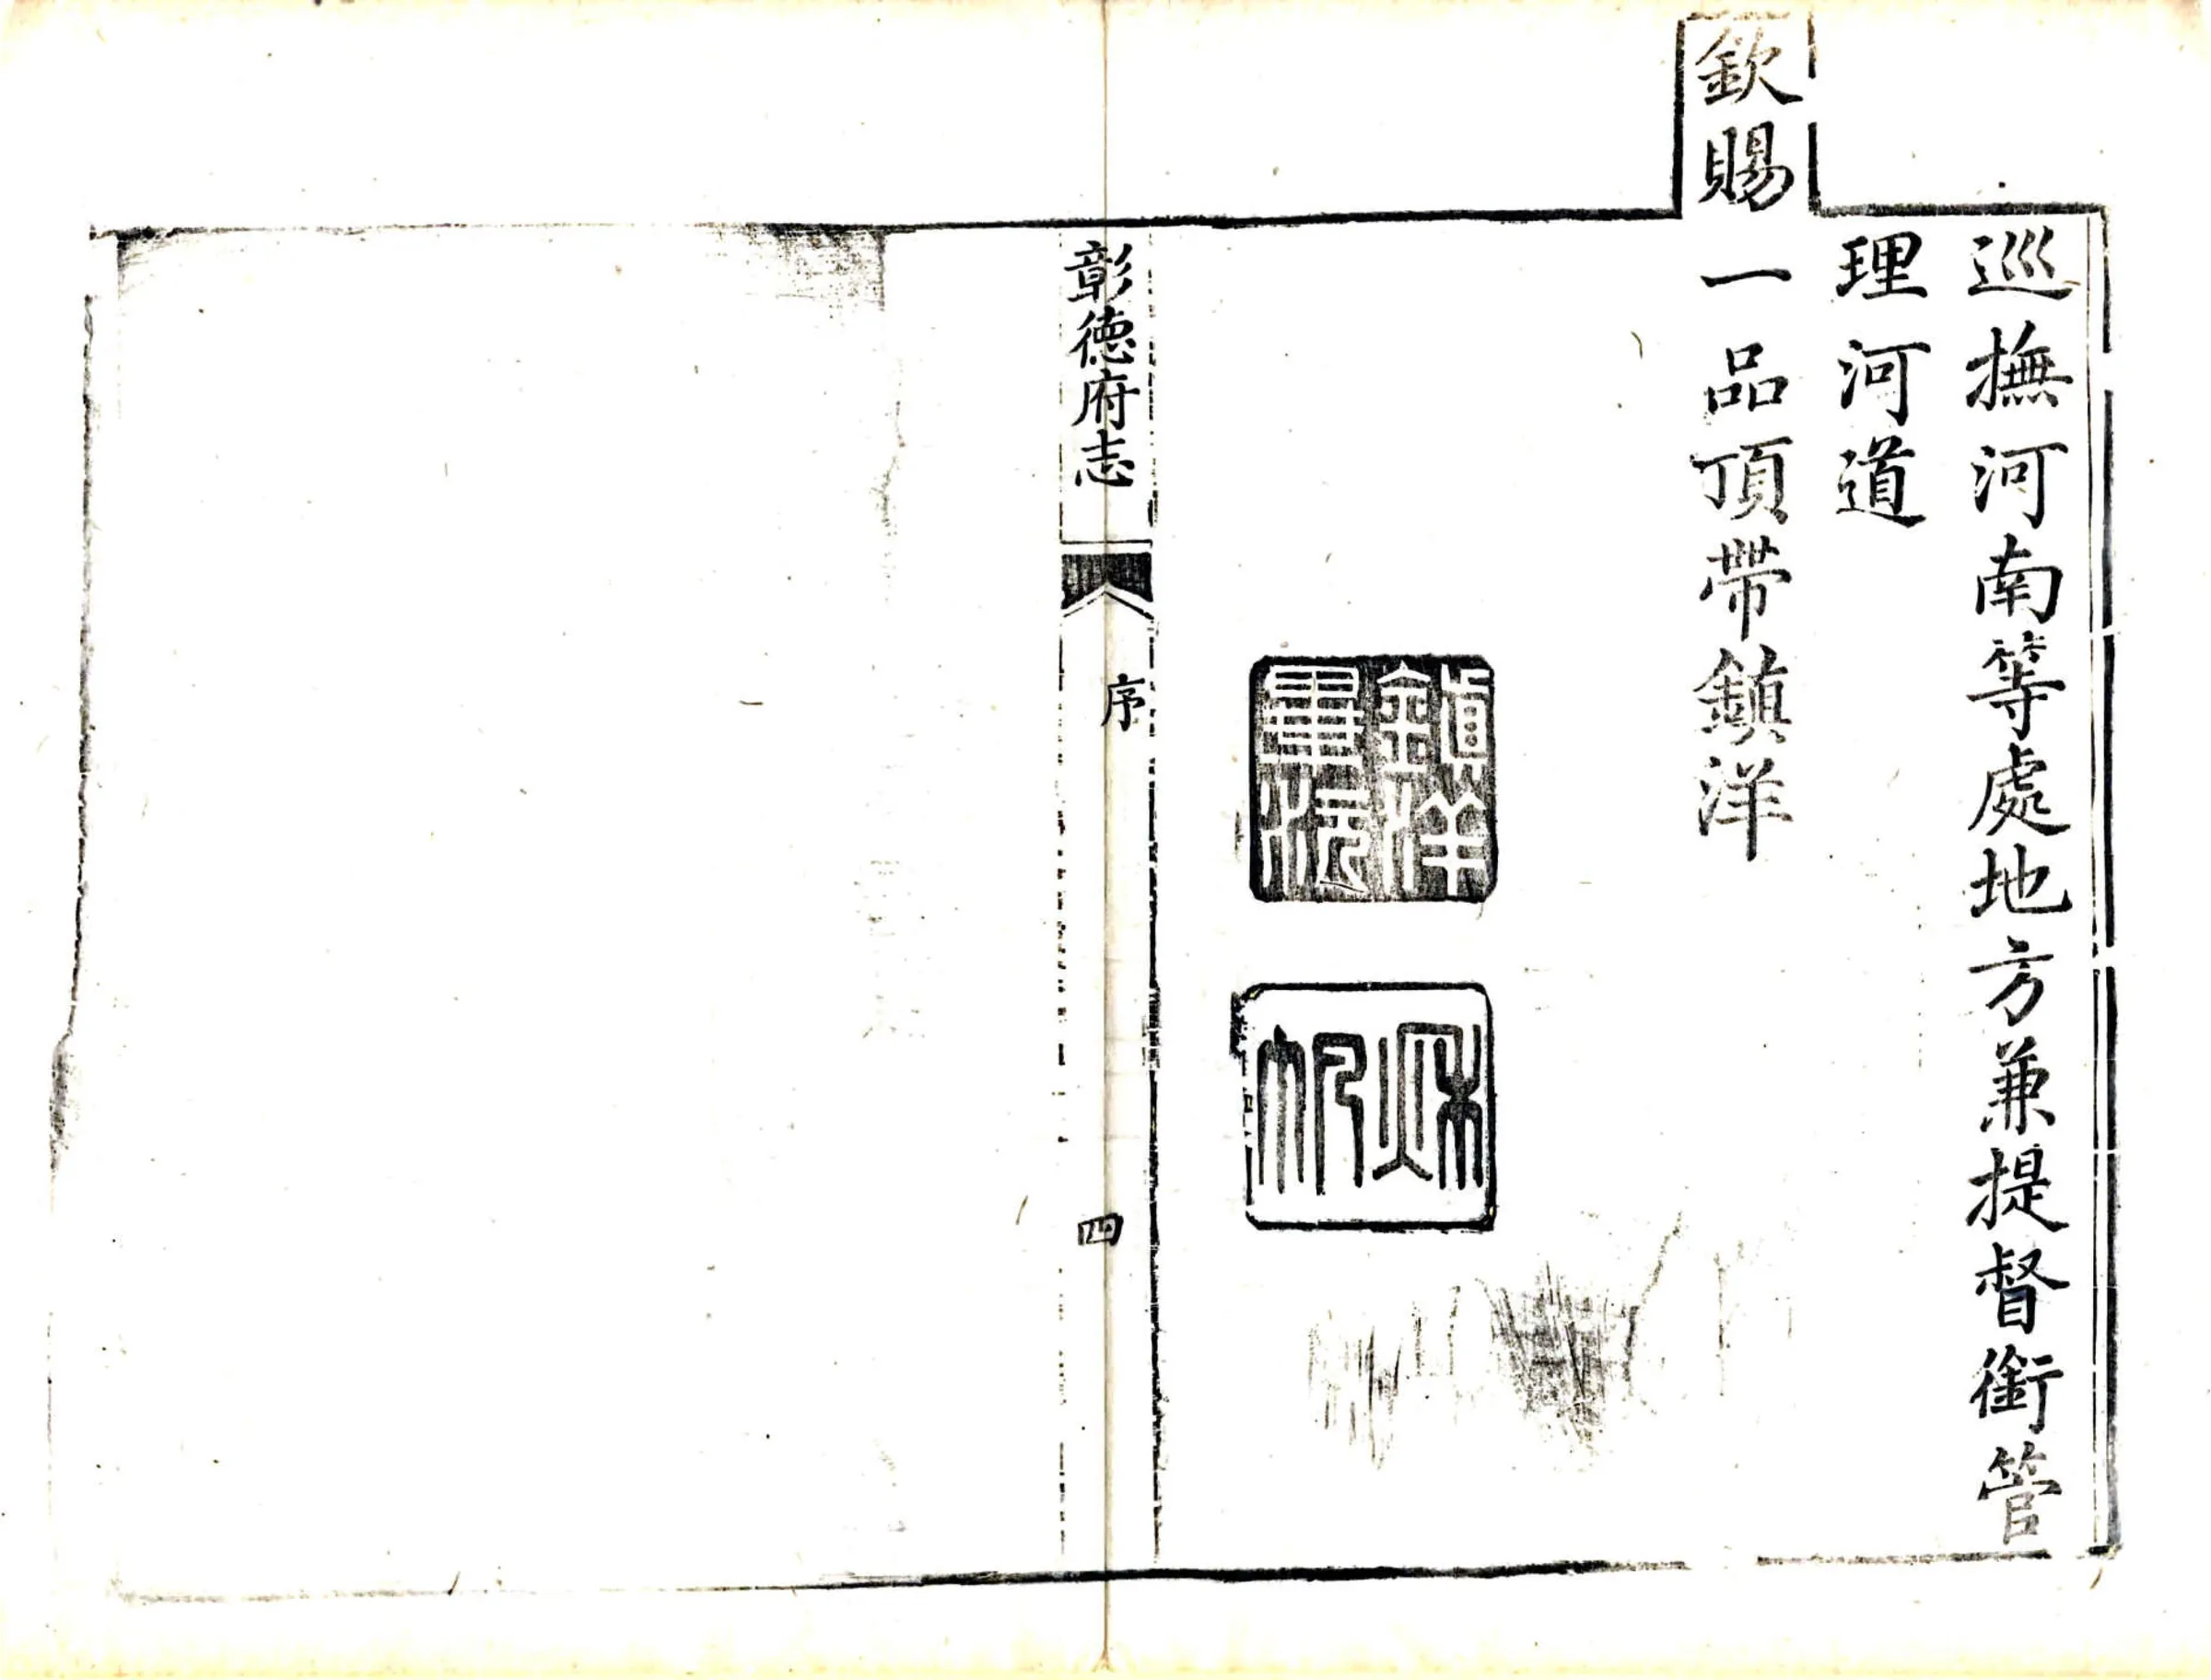 巡撫河南等處地方兼提督銜管
理河道
欽賜一品頂帶鎮洋
鎮洋
畢沅
秋帆
彰德府志
序
四